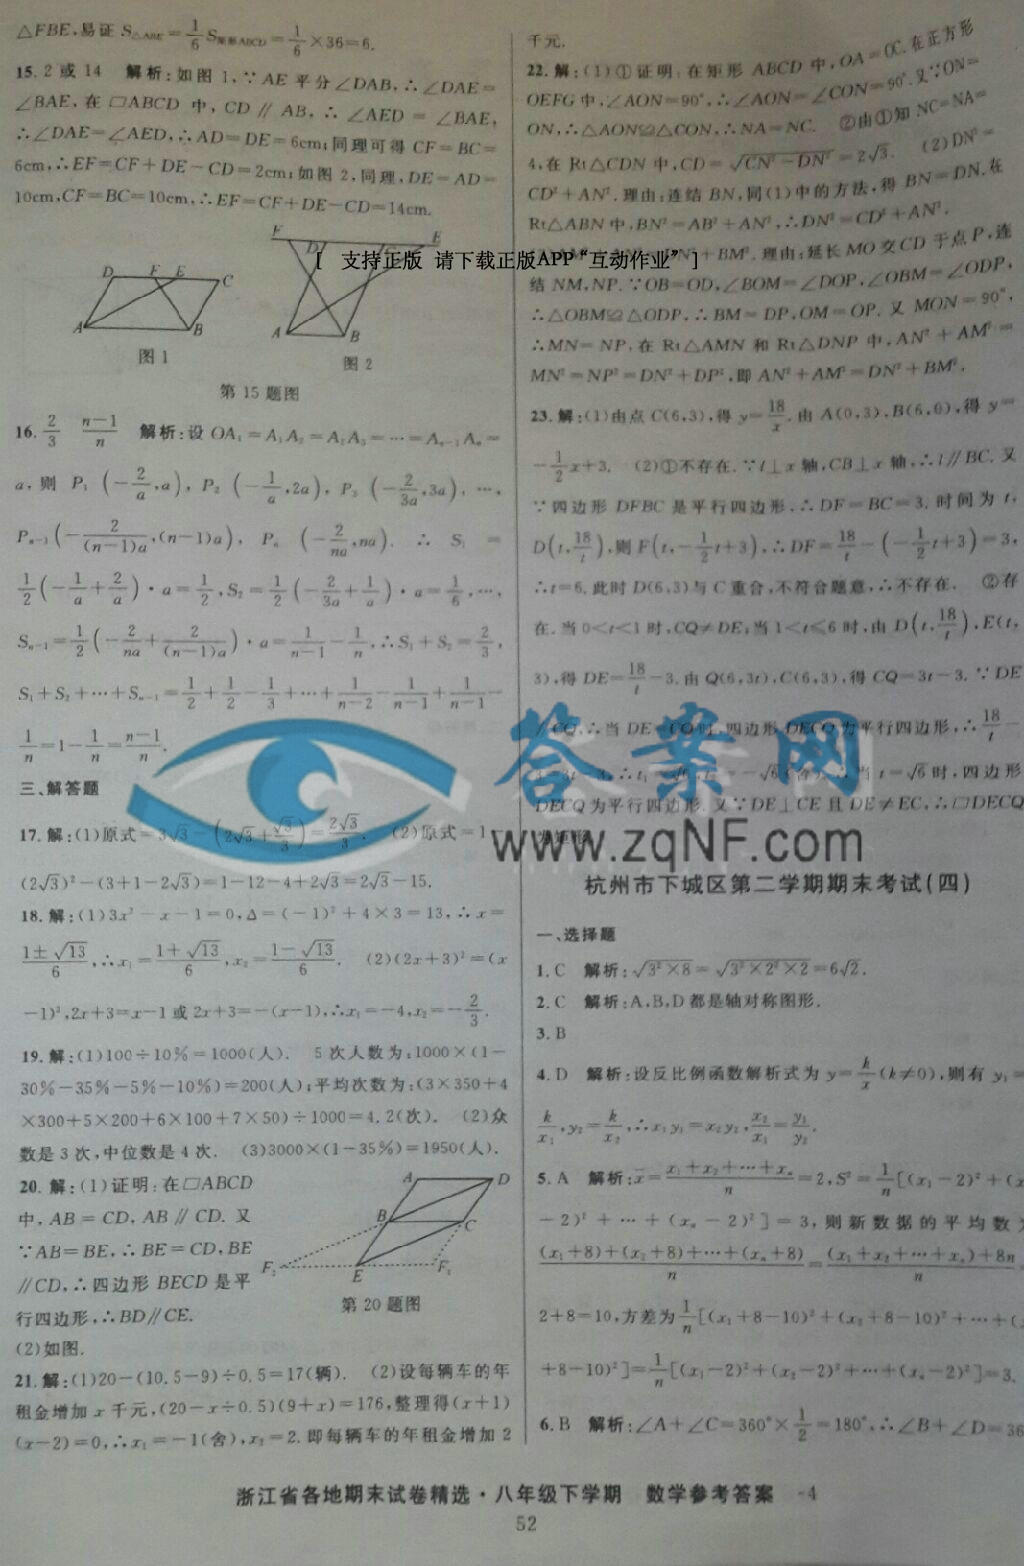 △FBE,易证 S△ABE=1/6 S矩形ABCD=1/6×36=6.
15. 2 或 14 解析:如图 1,∵AE 平分∠DAB,∴∠DAE=
∠BAE,在□ABCD 中,CD∥AB,∴∠AED=∠BAE,
∴∠DAE=∠AED,∴AD=DE=6cm;同理可得 CF=BC=
6cm,∴EF=CF+DE-CD=2cm;如图 2,同理,DE=AD=
10cm,CF=BC=10cm,∴EF=CF+DE-CD=14cm.
F D C E
D F E C
A B
A B
图 1
图 2
第 15 题图
16. 2/3 (n-1)/n 解析:设 OA₁=A₁A₂=A₂A₃=…=Aₙ₋₁Aₙ=
a,则 P₁(-2/a,a),P₂(-1/a,2a),P₃(-2/3a,3a),…,
Pₙ₋₁(-2/(n-1)a,(n-1)a),Pₙ(-2/na,na).∴S₁=
1/2(-1/a+2/a)·a=1/2,S₂=1/2(-2/3a+1/a)·a=1/6,…,
Sₙ₋₁=1/2(-2/na+2/(n-1)a)·a=1/(n-1)-1/n,∴S₁+S₂=2/3,
S₁+S₂+…+Sₙ₋₁=1/2+1/2-1/3+…+1/(n-2)-1/(n-1)+1/(n-1)-
1/n=1-1/n=(n-1)/n.
三、解答题
17. 解:(1)原式=3√3-(2√3+√3/3)=2√3/3. (2)原式=1-
(2√3)²-(3+1-2√3)=1-12-4+2√3=2√3-15.
18. 解:(1)3x²-x-1=0,Δ=(-1)²+4×3=13,∴x=
(1±√13)/6,∴x₁=(1+√13)/6,x₂=(1-√13)/6. (2)(2x+3)²=(x
-1)²,2x+3=x-1 或 2x+3=-(x-1),∴x₁=-4,x₂=-2/3.
19. 解:(1)100÷10%=1000(人). 5 次人数为:1000×(1-
30%-35%-5%-10%)=200(人);平均次数为:(3×350+4
×300+5×200+6×100+7×50)÷1000=4.2(次). (2)众
数是 3 次,中位数是 4 次. (3)3000×(1-35%)=1950(人).
20. 解:(1)证明:在□ABCD
中,AB=CD,AB∥CD.又
∵AB=BE,∴BE=CD,BE
∥CD,∴四边形 BECD 是平
行四边形,∴BD∥CE.
(2)如图.
A D
B C
E
第 20 题图
21. 解:(1)20-(10.5-9)÷0.5=17(辆). (2)设每辆车的年
租金增加 x 千元,(20-x÷0.5)(9+x)=176,整理得(x+1)
(x-2)=0,∴x₁=-1(舍),x₂=2.即每辆车的年租金增加 2
千元.
22. 解:(1)①证明:在矩形 ABCD 中,OA=OC.在正方形
OEFG 中,∠AON=90°,∴∠AON=∠CON=90°.又∵ON=
ON,∴△AON≌△CON,∴NA=NC. ②由①知 NC=NA=
4,在 Rt△CDN 中,CD=√(CN²-DN²)=2√3. (2)DN²=
CD²+AN².理由:连结 BN,同(1)中的方法,得 BN=DN.在
Rt△ABN 中,BN²=AB²+AN²,∴DN²=CD²+AN².
理由:延长 MO 交 CD 于点 P,连
[ 支持正版 请下载正版APP“互动作业” ]
结 NM,NP.∵OB=OD,∠BOM=∠DOP,∠OBM=∠ODP,
∴△OBM≌△ODP,∴BM=DP,OM=OP.又 MON=90°,
∴MN=NP,在 Rt△AMN 和 Rt△DNP 中,AN²+AM²=
MN²=NP²=DN²+DP²,即 AN²+AM²=DN²+BM².
23. 解:(1)由点 C(6,3),得 y=18/x.由 A(0,3),B(6,0),得 y=
-1/2x+3. (2)①不存在.∵l⊥x 轴,CB⊥x 轴,∴l∥BC.又
∵四边形 DFBC 是平行四边形,∴DF=BC=3.时间为 t,
D(t,18/t),则 F(t,-1/2t+3),∴DF=18/t-(-1/2t+3)=3,
∴t=6.此时 D(6,3)与 C 重合,不符合题意,∴不存在. ②存
在.当 0<t<1 时,CQ≠DE;当 1<t≤6 时,由 D(t,18/t),E(t,
3),得 DE=18/t-3.由 Q(6,3t),C(6,3),得 CQ=3t-3.∵DE
∥CQ,∴当 DE=CQ 时,四边形 DECQ 为平行四边形,∴18/t
-3=3t-3,∴t₁=√6,t₂=-√6(舍),∴当 t=√6 时,四边形
DECQ 为平行四边形.又∵DE⊥CE 且 DE≠EC,∴□DECQ
答案网
www.zqNF.com
杭州市下城区第二学期期末考试(四)
一、选择题
1. C 解析:√(3²×8)=√(3²×2²×2)=6√2.
2. C 解析:A,B,D 都是轴对称图形.
3. B
4. D 解析:设反比例函数解析式为 y=k/x(k≠0),则有 y₁=
k/x₁,y₂=k/x₂,∴x₁y₁=x₂y₂,x₂/x₁=y₁/y₂.
5. A 解析:x̄=(x₁+x₂+…+xₙ)/n=2,S²=1/n[(x₁-2)²+(x
-2)²+…+(xₙ-2)²]=3,则新数据的平均数为
((x₁+8)+(x₂+8)+…+(xₙ+8))/n=((x₁+x₂+…+xₙ)+8n)/n
2+8=10,方差为1/n[(x₁+8-10)²+(x₂+8-10)²+…+(x
+8-10)²]=1/n[(x₁-2)²+(x₂-2)²+…+(xₙ-2)²]=3.
6. B 解析:∠A+∠C=360°×1/2=180°,∴∠B+∠D=36
浙江省各地期末试卷精选·八年级下学期 数学参考答案 -4
52